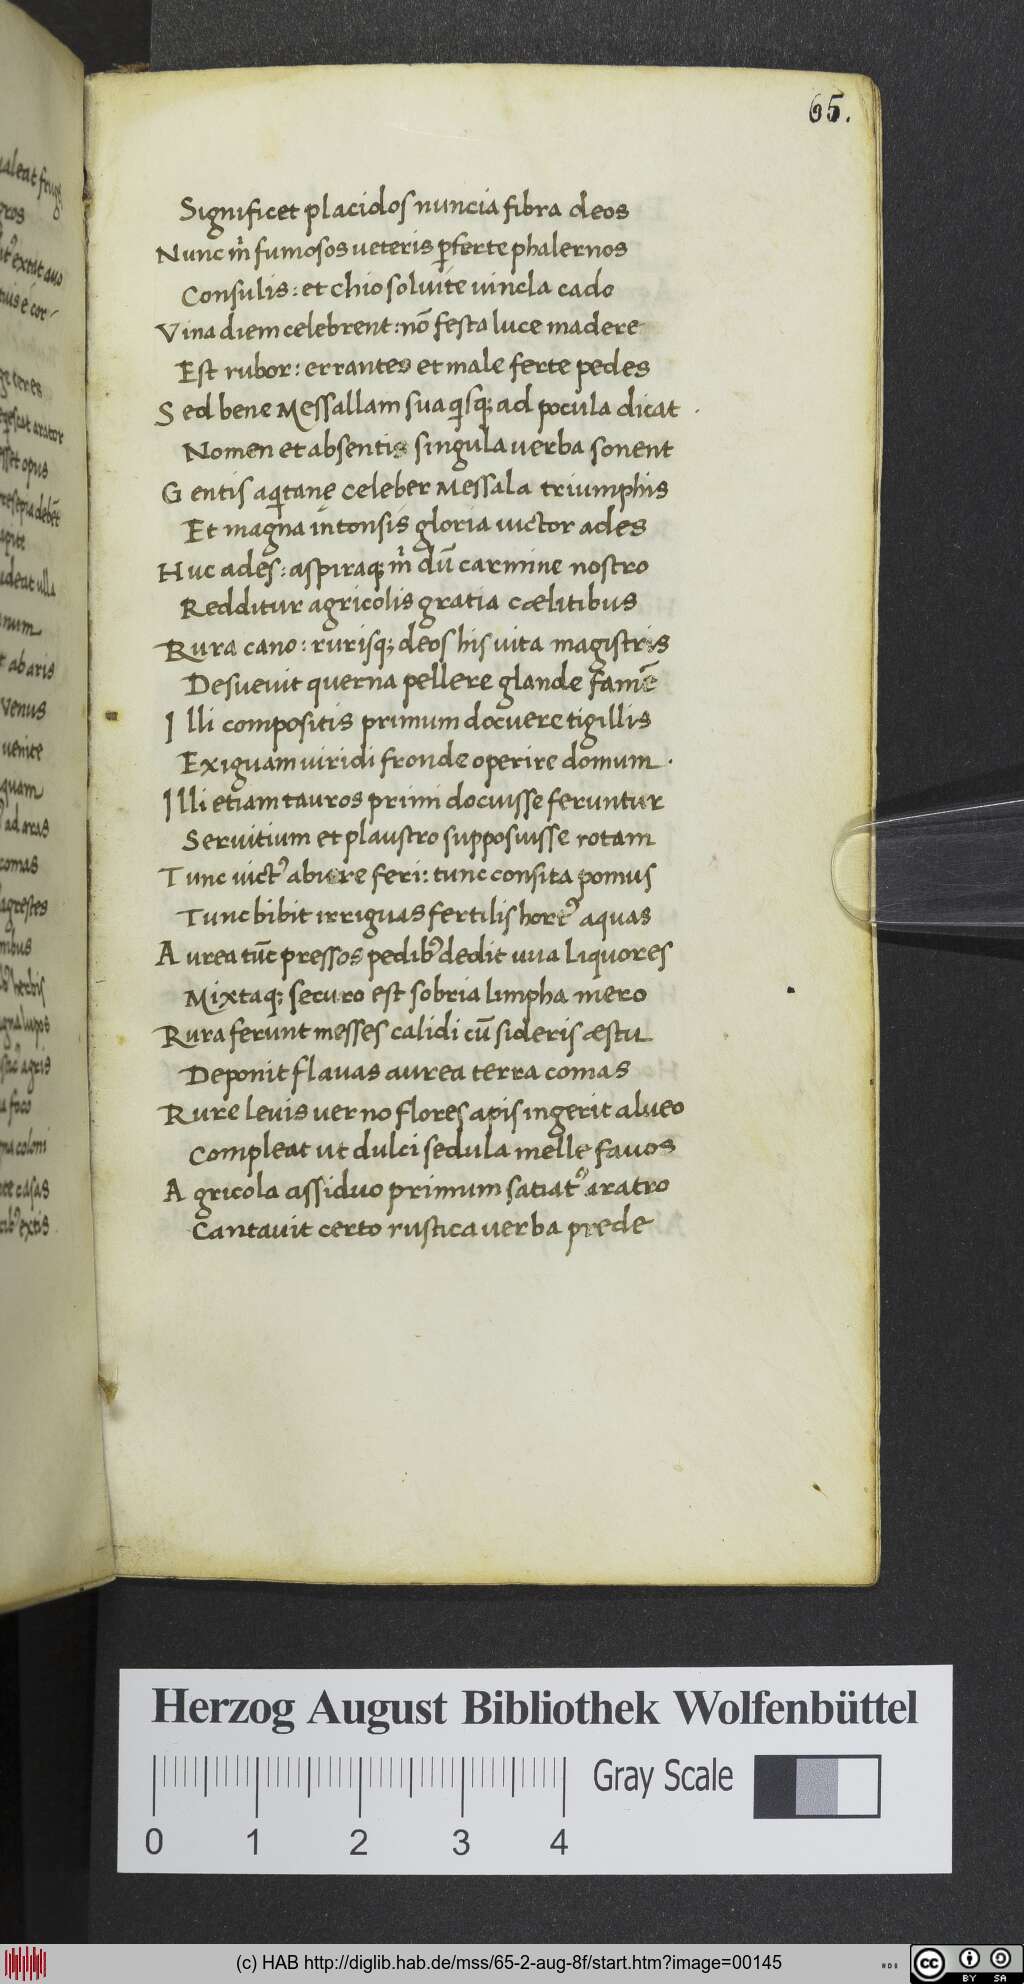 65.
Significet placidos nuncia fibra deos
Nunc m̊ fumosos veteris ꝑferte phalernos
Consulis: et chio soluite vincla cado
Vina diem celebrent: nō festa luce madere
Est rubor: errantes et male ferte pedes
Sed bene Messallam sua qͥsqꝫ ad pocula dicat .
Nomen et absentis singula verba sonent
Gentis aqͥtanę celeber Messala triumphis
Et magna intonsis gloria victor ades
Huc ades: aspiraqꝫ mͥ dū carmine nostro
Redditur agricolis gratia cælitibus
Rura cano: rurisqꝫ deos his vita magistris
Desuevit querna pellere glande famē
Illi compositis primum docuere tigillis
Exiguam viridi fronde operire domum .
Illi etiam tauros primi docuisse feruntur
Servitium et plaustro supposuisse rotam
Tunc victꝰ abiere feri: tunc consita pomus
Tunc bibit irriguas fertilis hortꝰ aquas
Aurea tūc pressos pedibꝰ dedit uva liquores
Mixtaqꝫ securo est sobria limpha mero
Rura ferunt messes calidi cū sideris æstu
Deponit flavas aurea terra comas
Rure levis verno flores apis ingerit alveo
Compleat ut dulci sedula melle favos
Agricola assiduo primum satiatꝰ aratro
Cantavit certo rustica verba prede
Herzog August Bibliothek Wolfenbüttel
Gray Scale
0 1 2 3 4
(c) HAB http://diglib.hab.de/mss/65-2-aug-8f/start.htm?image=00145
HAB
cc BY SA